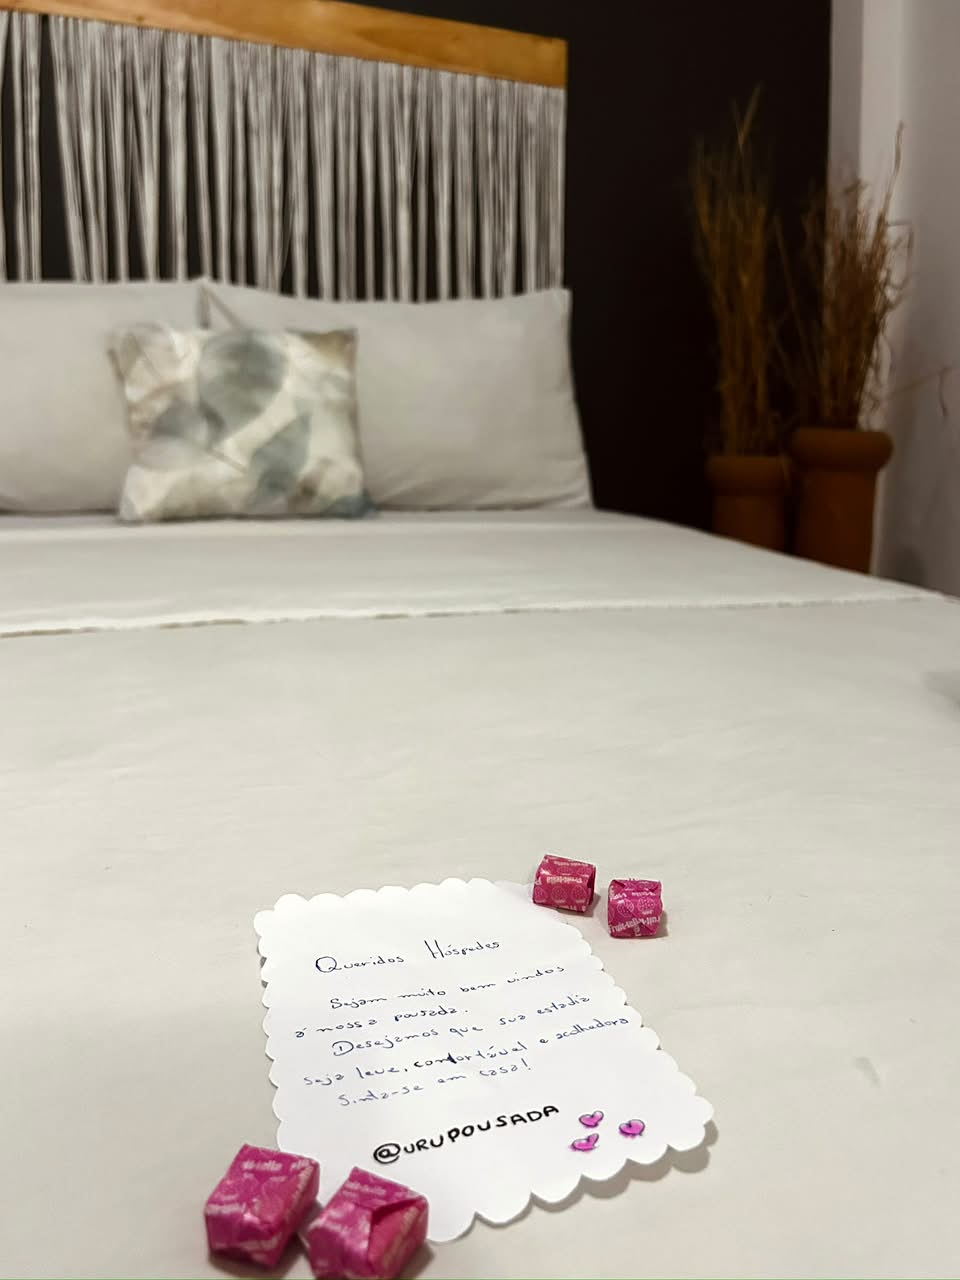 Queridos Hóspedes
Sejam muito bem vindos
á nossa pousada.
Desejamos que sua estadia
seja leve, confortável e acolhedora
Sinta-se em casa!
@URUPOUSADA